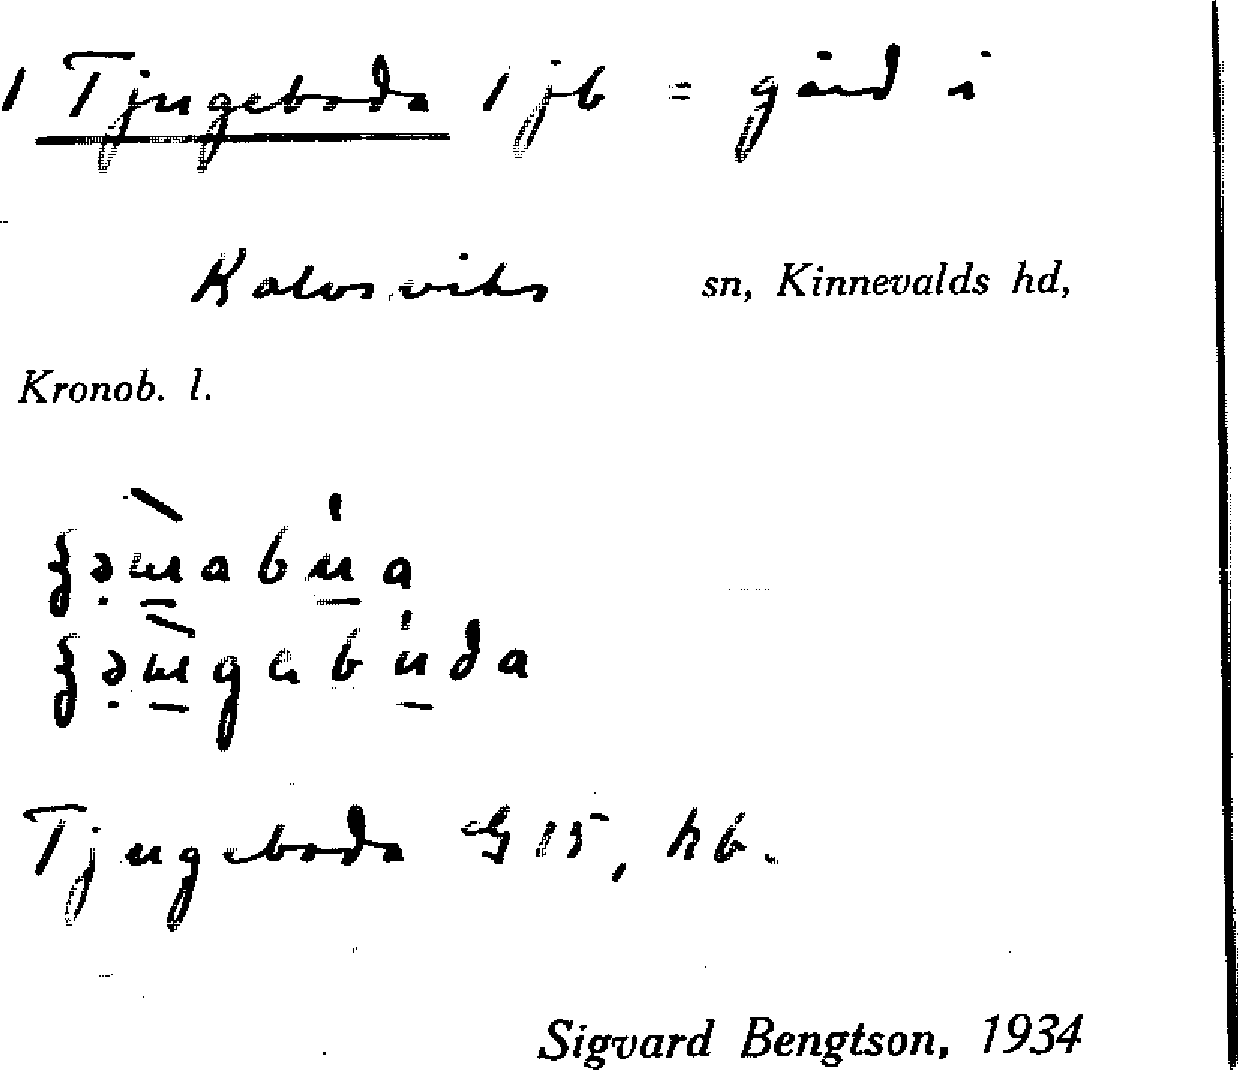 1 Tjugeboda 1 jb = gård i
Kalvsviks sn, Kinnevalds hd,
Kronob. l.
Tjugeboda G 15, hb.
Sigvard Bengtson, 1934